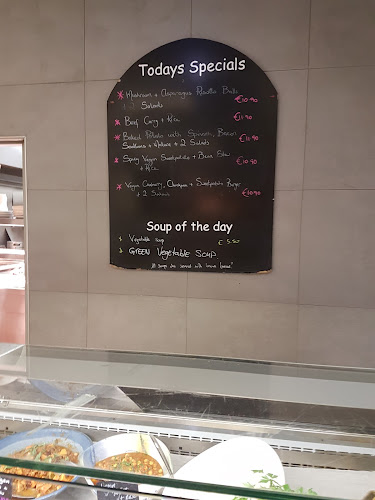 Todays Specials
* Mushroom + Asparagus Risotto Balls €10.90
2 Salads
* Beef Curry + Rice €10.90
* Baked Potato with Spinach, Bacon €10.90
+ 2 Salads
* Spicy Vegan Sweetpotato + Bean Stew €10.90
+ Rice
* Vegan Cranberry, Chickpea + Sweetpotato Burger €10.90
+ 2
Soup of the day
Vegetable soup €5.50
GREEN Vegetable SOUP.
All soups are served with brown bread"